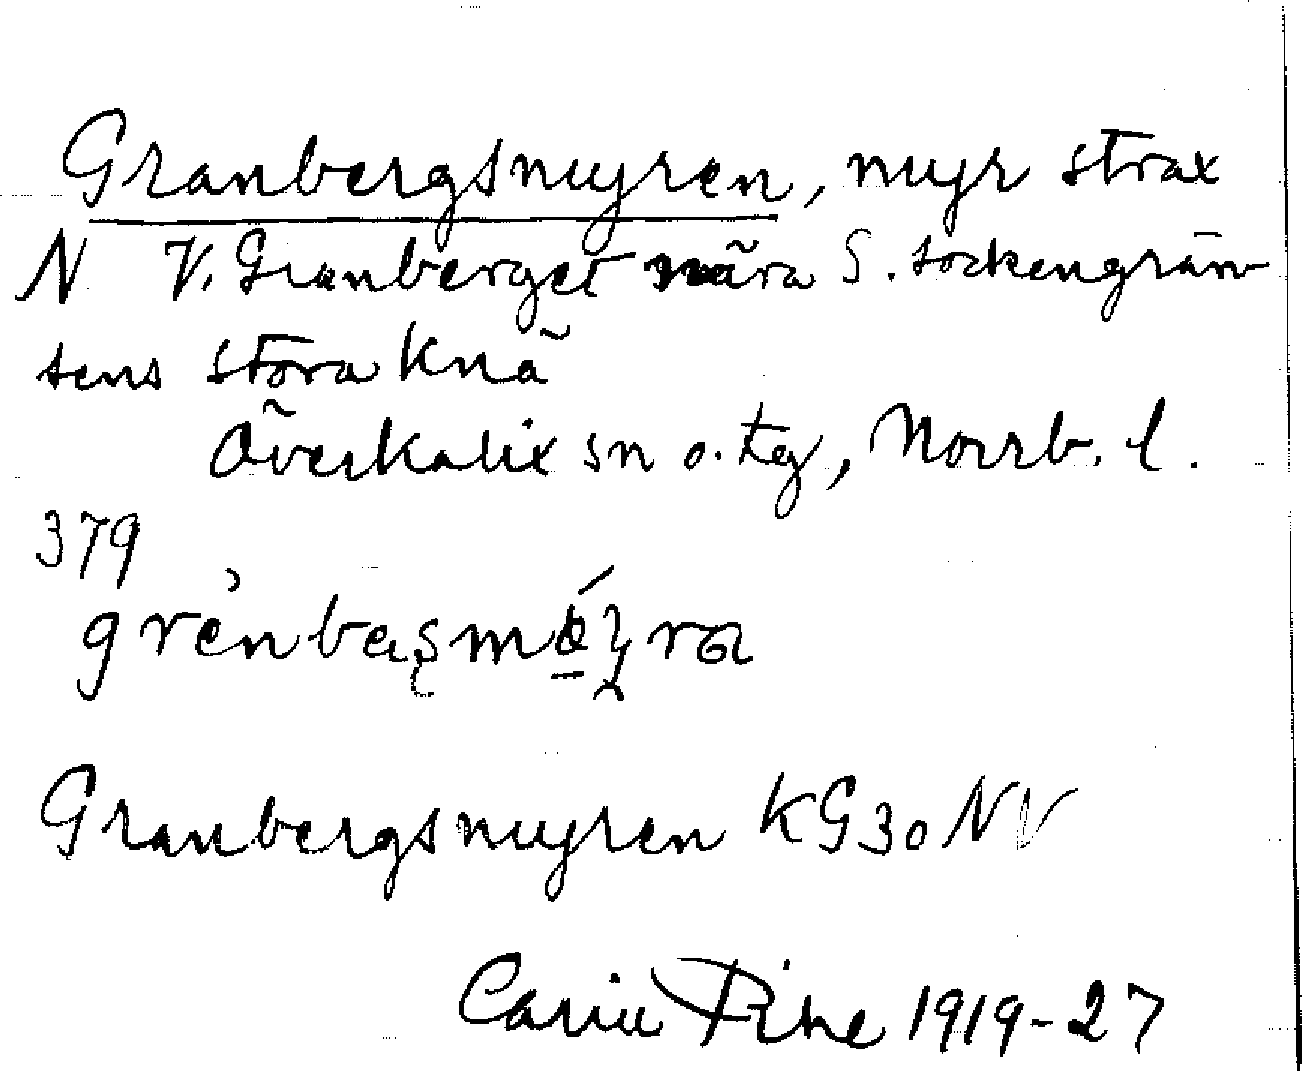 Granbergsmyren, myr strax
N V. Granberget nära S. sockengrän
sens stora knä
Överkalix sn o. tg, Norrb. l.
379
Granbergsmyren KG30 NV
Carin Pihl 1919-27